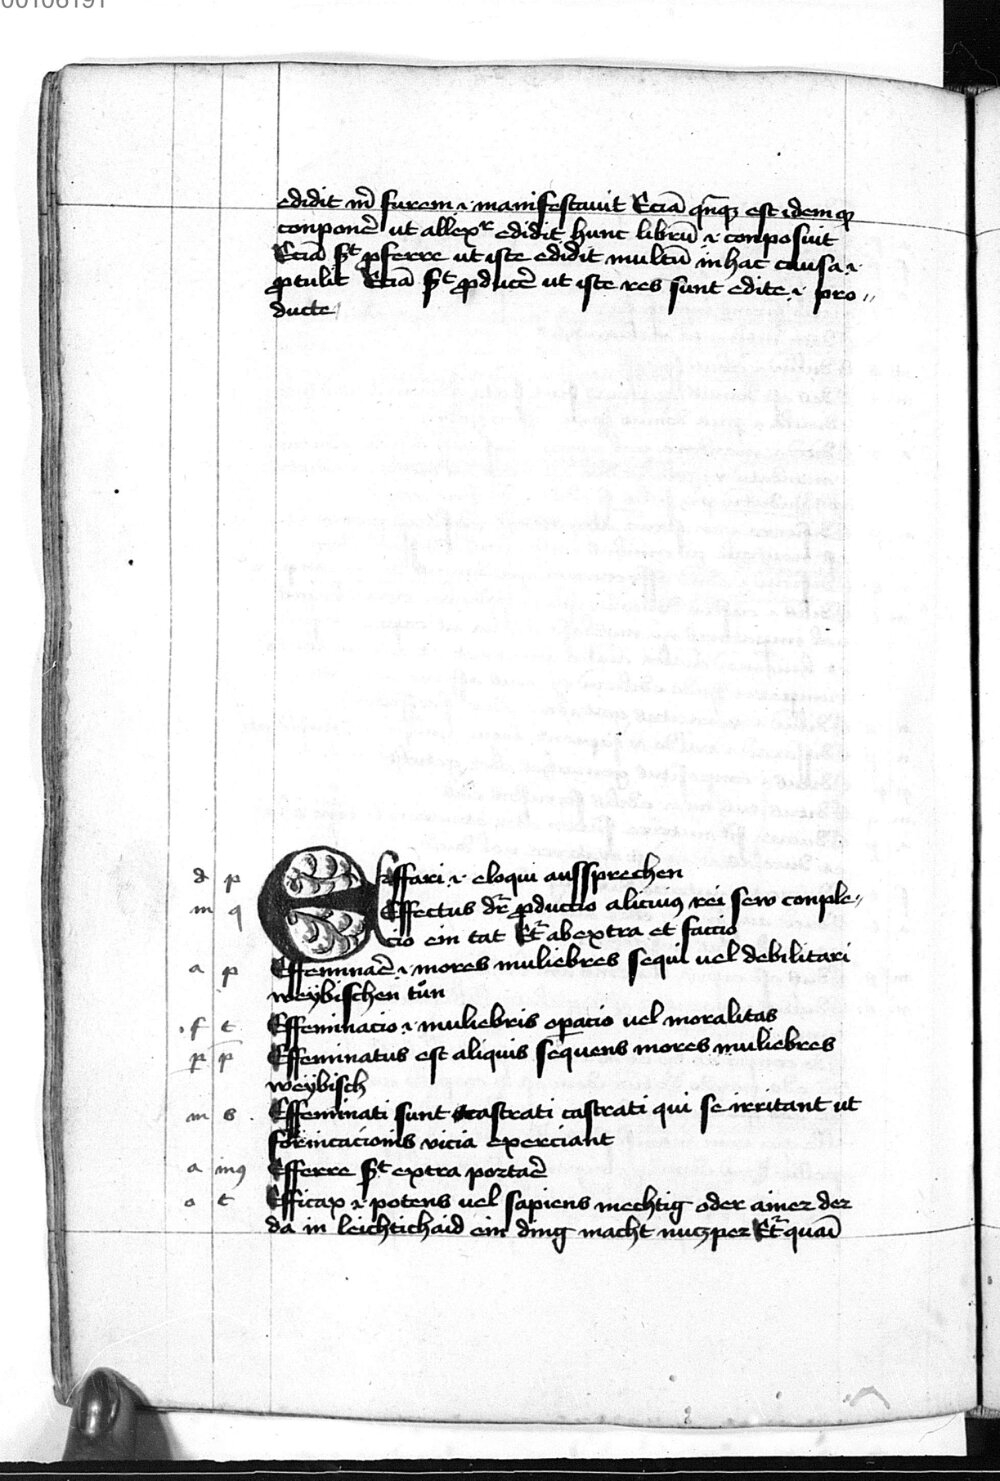 00106191
edidit m̄ furem .i. manifestauit Eciā qn̄q3 est idem qꝫ
conponē ut allexr edidit hunc librū .i. conposuit
Eciā st pferre ut iste edidit multū in hac causa .i.
ptulit Eciā st pducē ut iste res sunt edite .i. pro〃
ducte
d p Effari .i. eloqui aussprechen
m q Effectus dr̄ pductio alicuiꝰ rei sew conple〃
cio ein tat Et̄ ab extra et faccio
a p Effeminacē .i. mores muliebres sequi uel debilitari
weybischen tůn
f t Effeminacio .i. muliebris opacio uel moralitas
p p Effeminatus est aliquis sequens mores muliebres
weybisch
m s Effeminati sunt castrati qui se irritant ut
fornicacionis vicia exerciant
a inꝰ Efferre st extra portacē
o t Efficax .i. potens uel sapiens mechtig oder ainer der
da in leichtichaid ein ding macht nuczper Et̄ quam̄